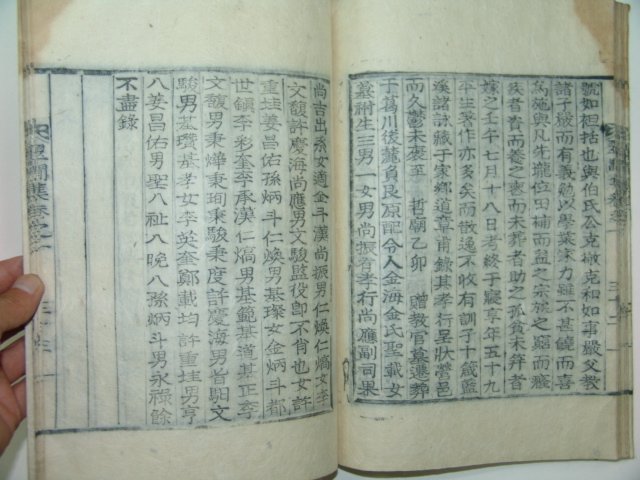 號如袒括也與伯氏公克撤克和如事嚴父教
諸子姪而有義勉以學業家力雖不甚饒而喜
爲施與凡先壠位田補而益之宗族之窮而癈
疾者資而養之喪而未葬者助之孤貧未笄者
嫁之壬午七月十八日考終于寢享年五十九
平生著作亦多矣而散逸不收有訓子十歲藍
溪諸詠藏于家鄕道章甫錄其孝行呈狀營邑
而久鬱未褒至 哲廟乙卯 贈敎官墓遷葬
于葛川後麓負艮原配令人金海金氏聖載女
墓祔生三男一女男尙振有孝行尙應副司果
尙吉出系女適金斗漢尙振男仁煥仁熇女李
文馥許慶海尙應男文駿監役卽不肖也女許
重珪姜昌佑孫炳斗仁煥男基璨女金炳斗都
世鎭李彩奎李承漢仁熇男基範基道基正李
文馥男秉燁秉珣秉駿秉度許慶海男首馹文
駿男基瓚基孝女李英奎鄭載均許重珪男亨
八姜昌佑男聖八祉八晩八孫炳斗男永祿餘
不盡錄